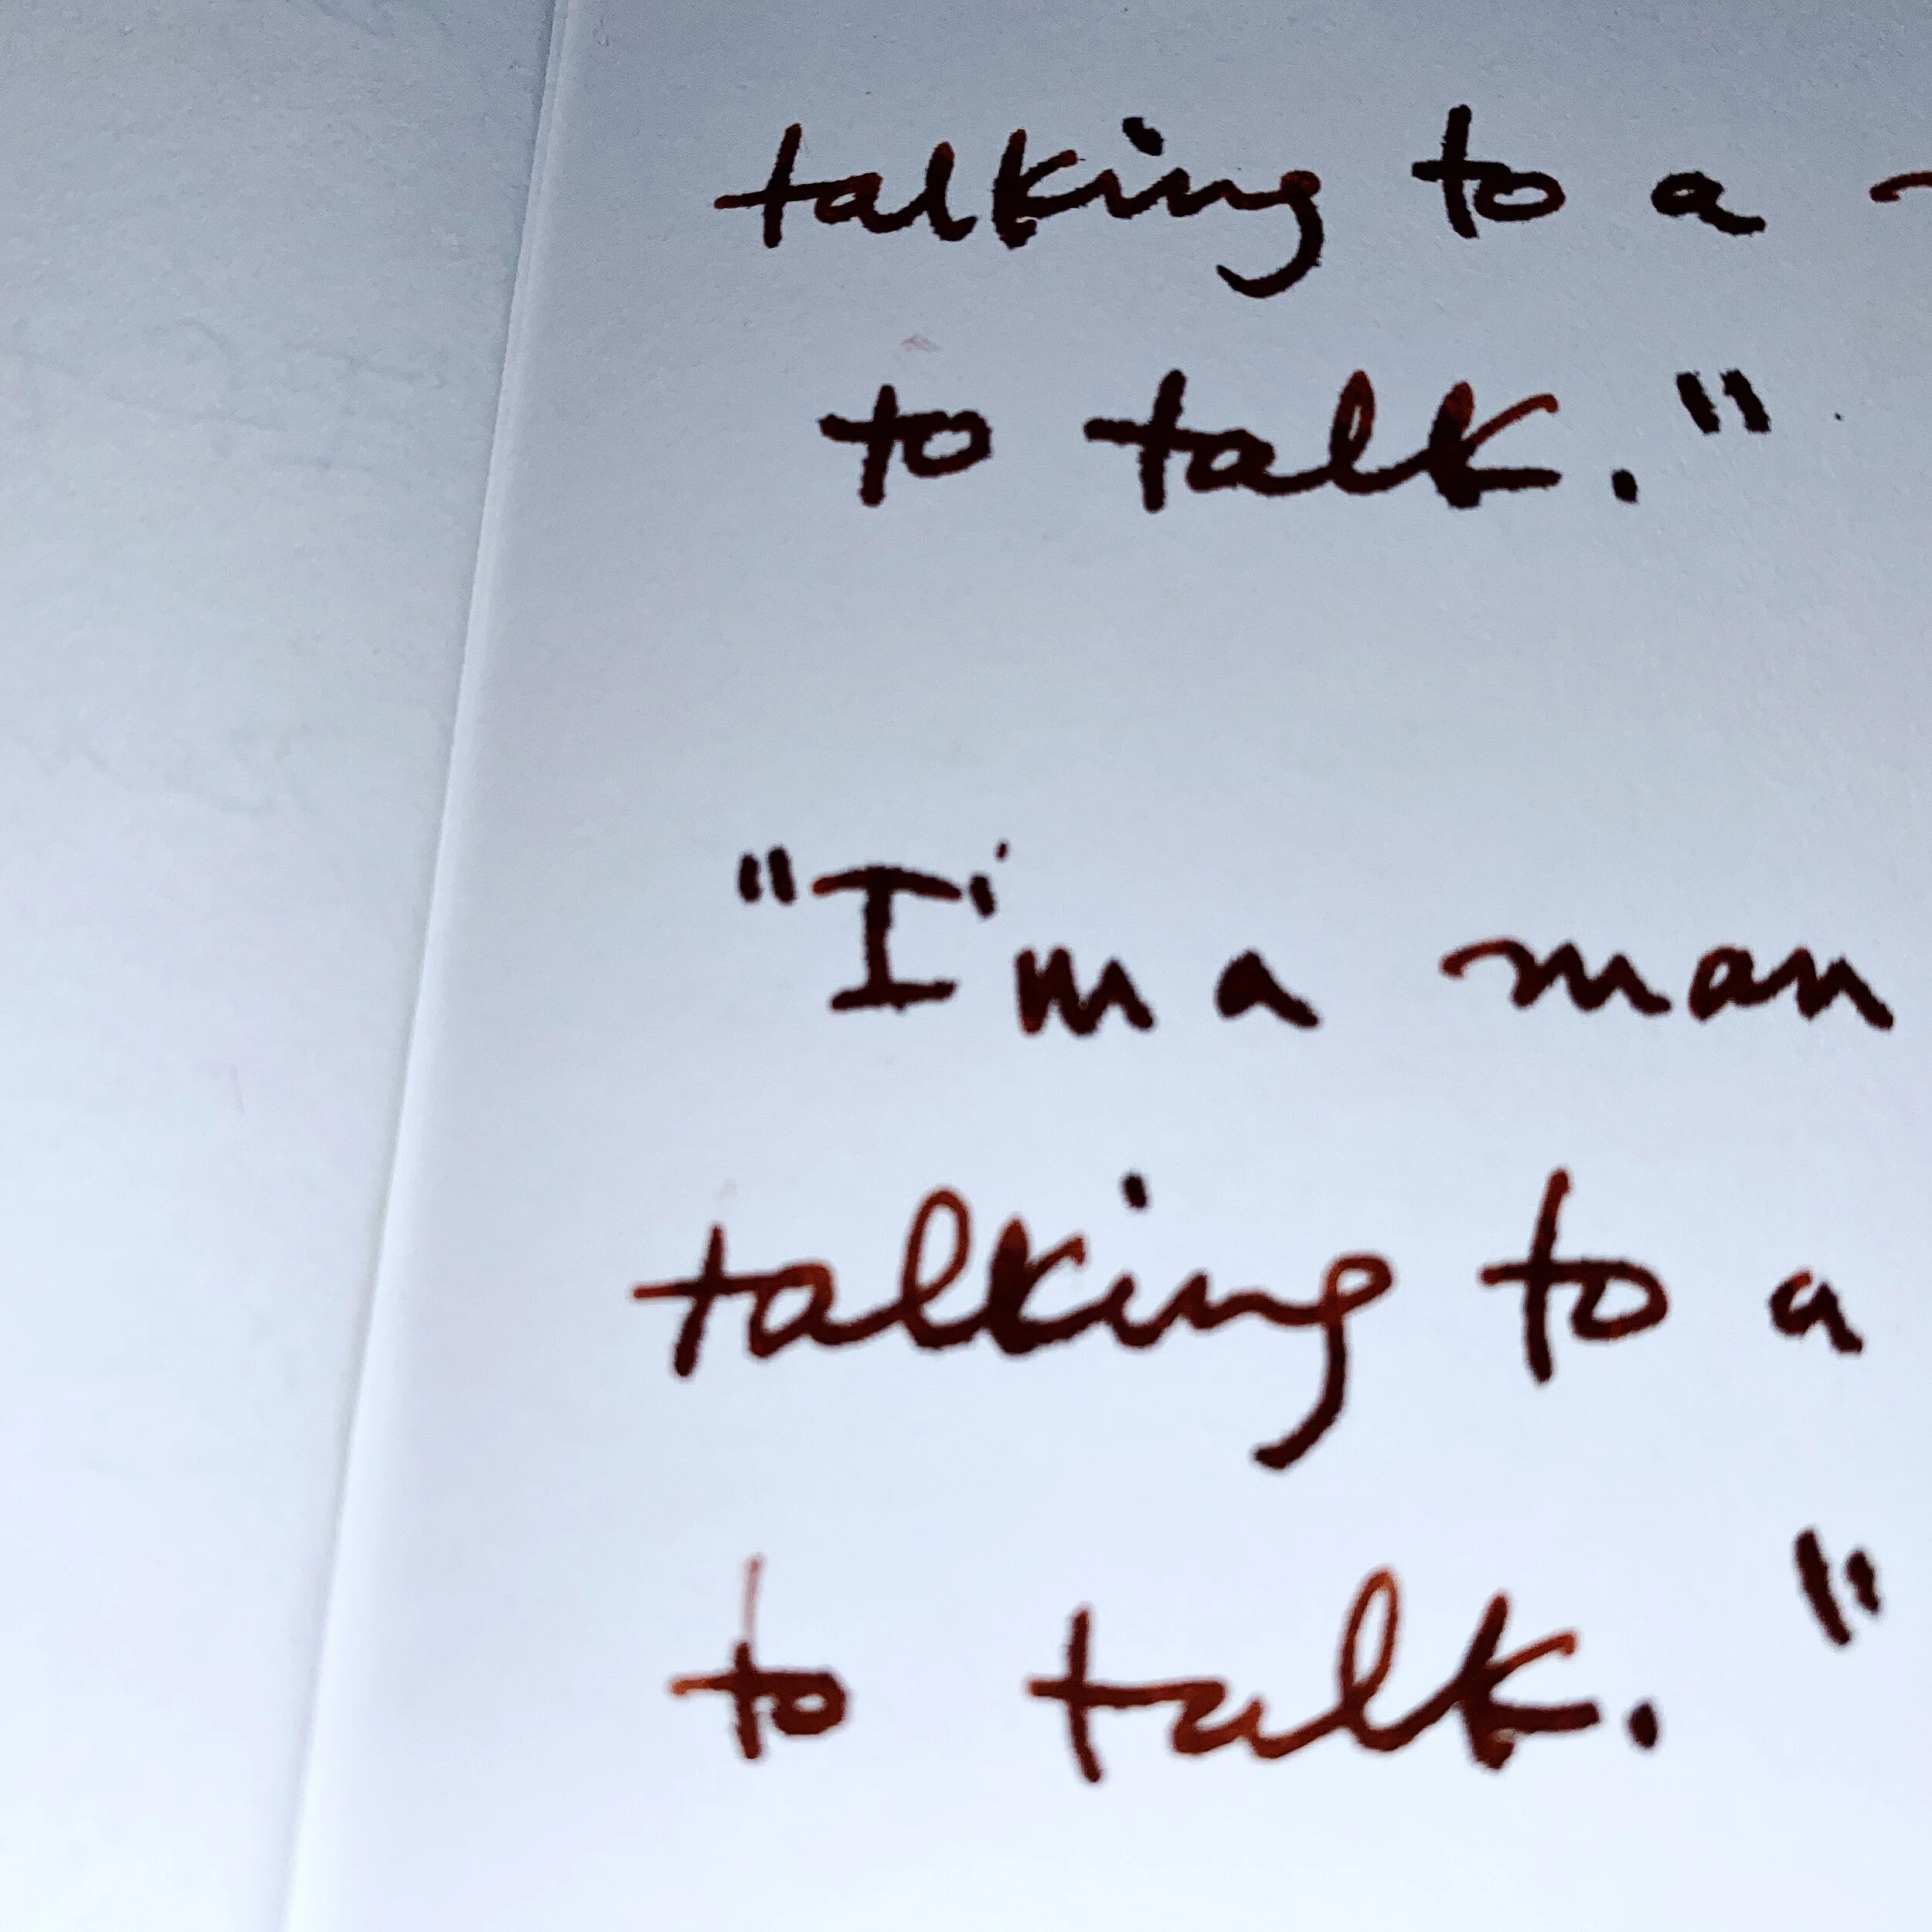 talking to a
to talk."
"I'm a man
talking to a
to talk."